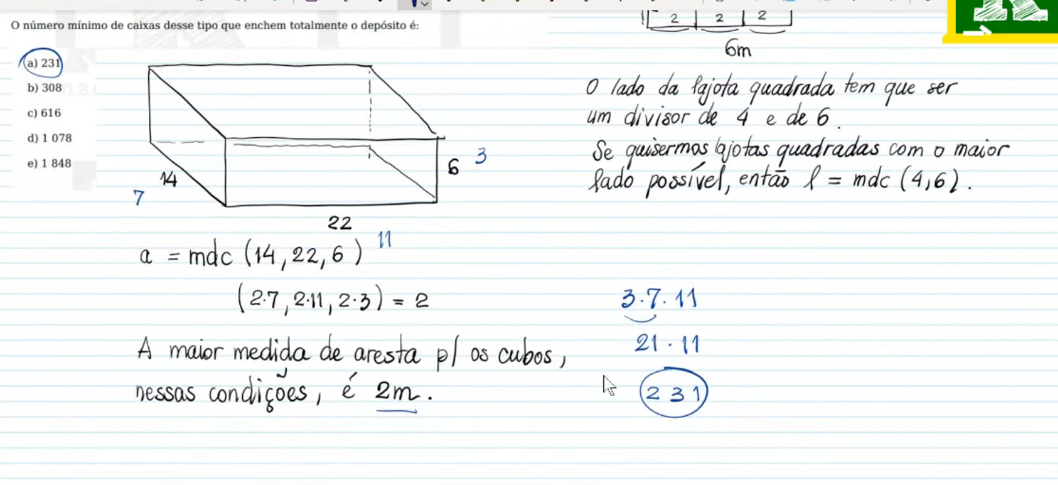 O número mínimo de caixas desse tipo que enchem totalmente o depósito é:
a) 231
b) 308
c) 616
d) 1 078
e) 1 848
2 2 2
6m
O lado da lajota quadrada tem que ser
um divisor de 4 e de 6.
Se quisermos lajotas quadradas com o maior
lado possível, então l = mdc (4,6).
6 3
14
7
22
11
a = mdc (14, 22, 6)
(2·7, 2·11, 2·3) = 2
3·7·11
21·11
231
A maior medida de aresta p/ os cubos,
nessas condições, é 2m.